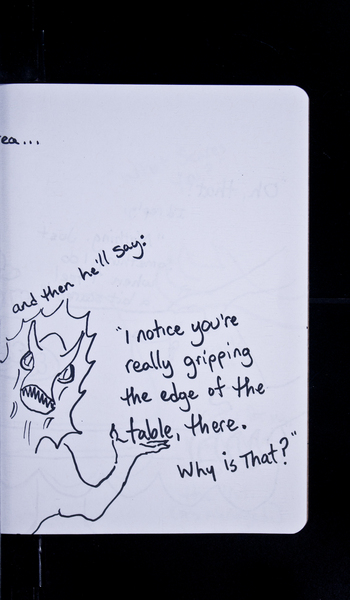 ea...
and then he'll say:
"I notice you're
really gripping
the edge of the
table, there.
Why is That?"